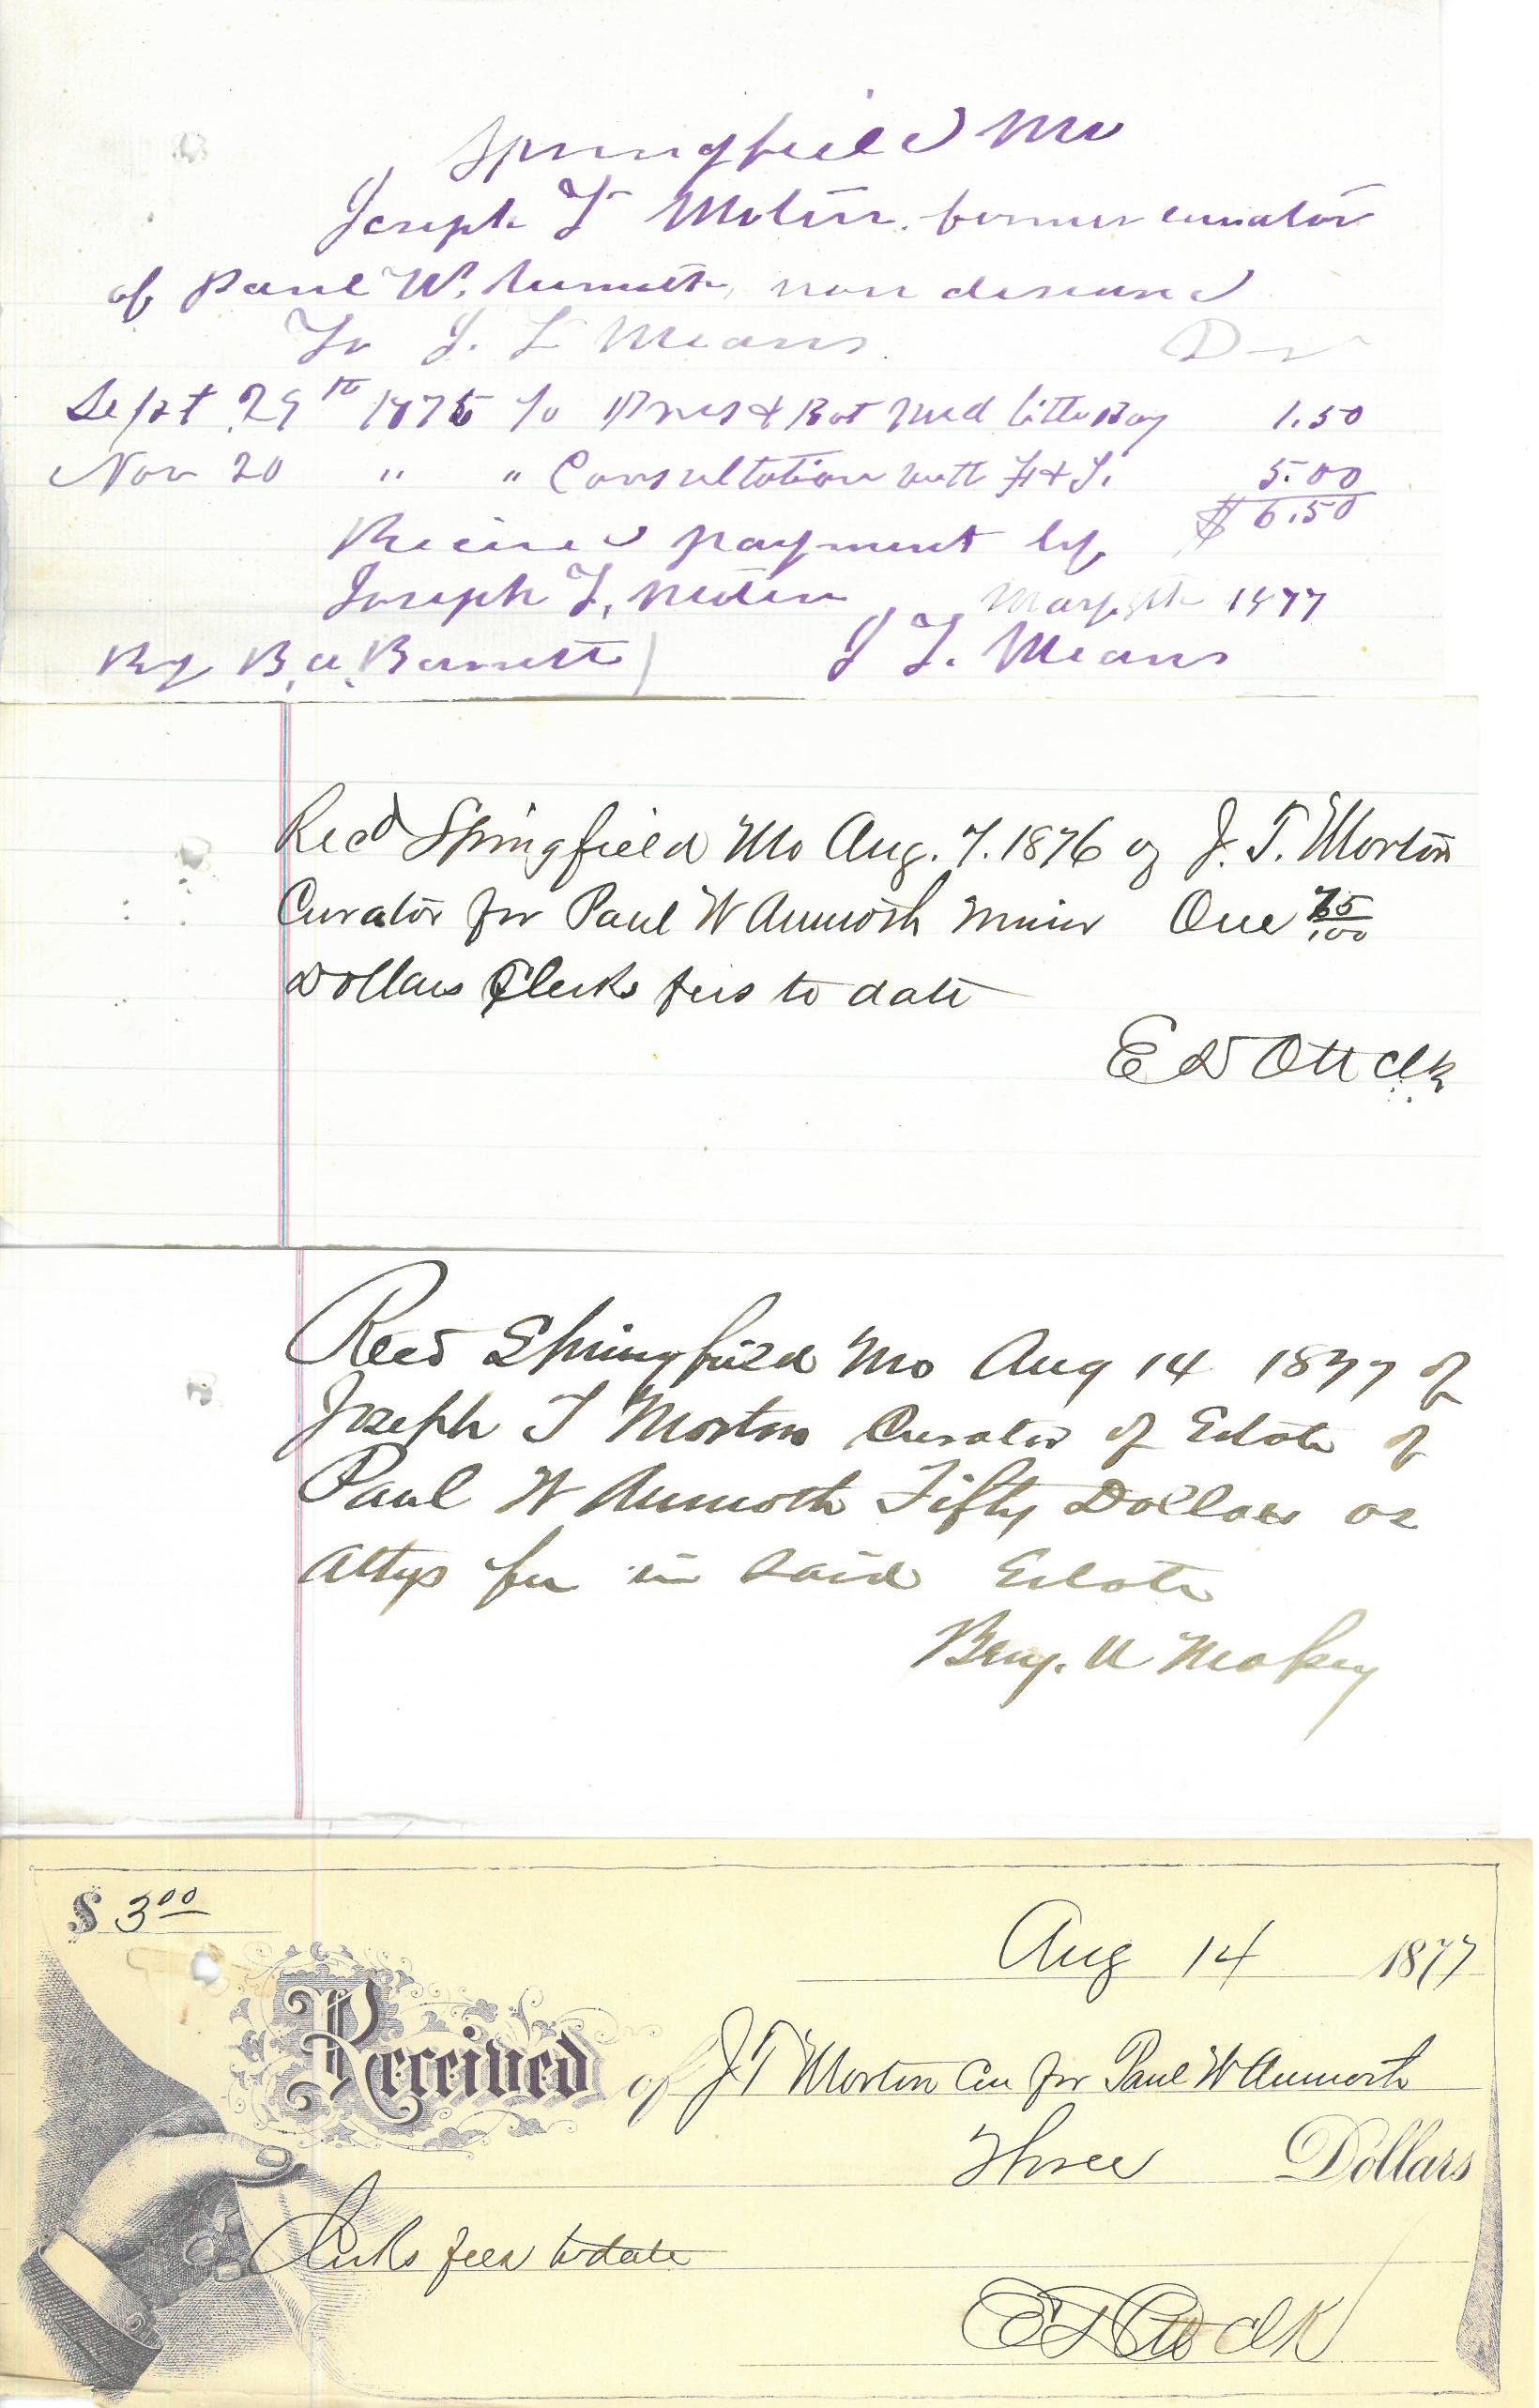 Springfield Mo
Joseph T Morton. former curator
of Paul W. Aumoth, now deceased
To J. L Means Dr
Sept 29th 1875 To Pres & Bot Med little Boy 1.50
Nov 20 " " Consultation with F & T. 5.00
$ 6.50
Received payment by
Joseph T. Morton May 9th 1877
By B. U. Barrett) J L. Means
Recd Springfield Mo Aug. 7. 1876 of J. T. Morton
Curator for Paul W Aumoth minor One 75/100
Dollars Clerks fees to date
E D Ott Clk
Recd Springfield Mo Aug 14 1877 of
Joseph T Morton Curator of Estate of
Paul W Aumoth Fifty Dollars as
Attys fee in said Estate
Benj. U Massey
$ 3.00
Aug 14 1877
Received of J T Morton Cu for Paul W Aumoth
Three Dollars
Clerks fees to date
E D Ott Clk